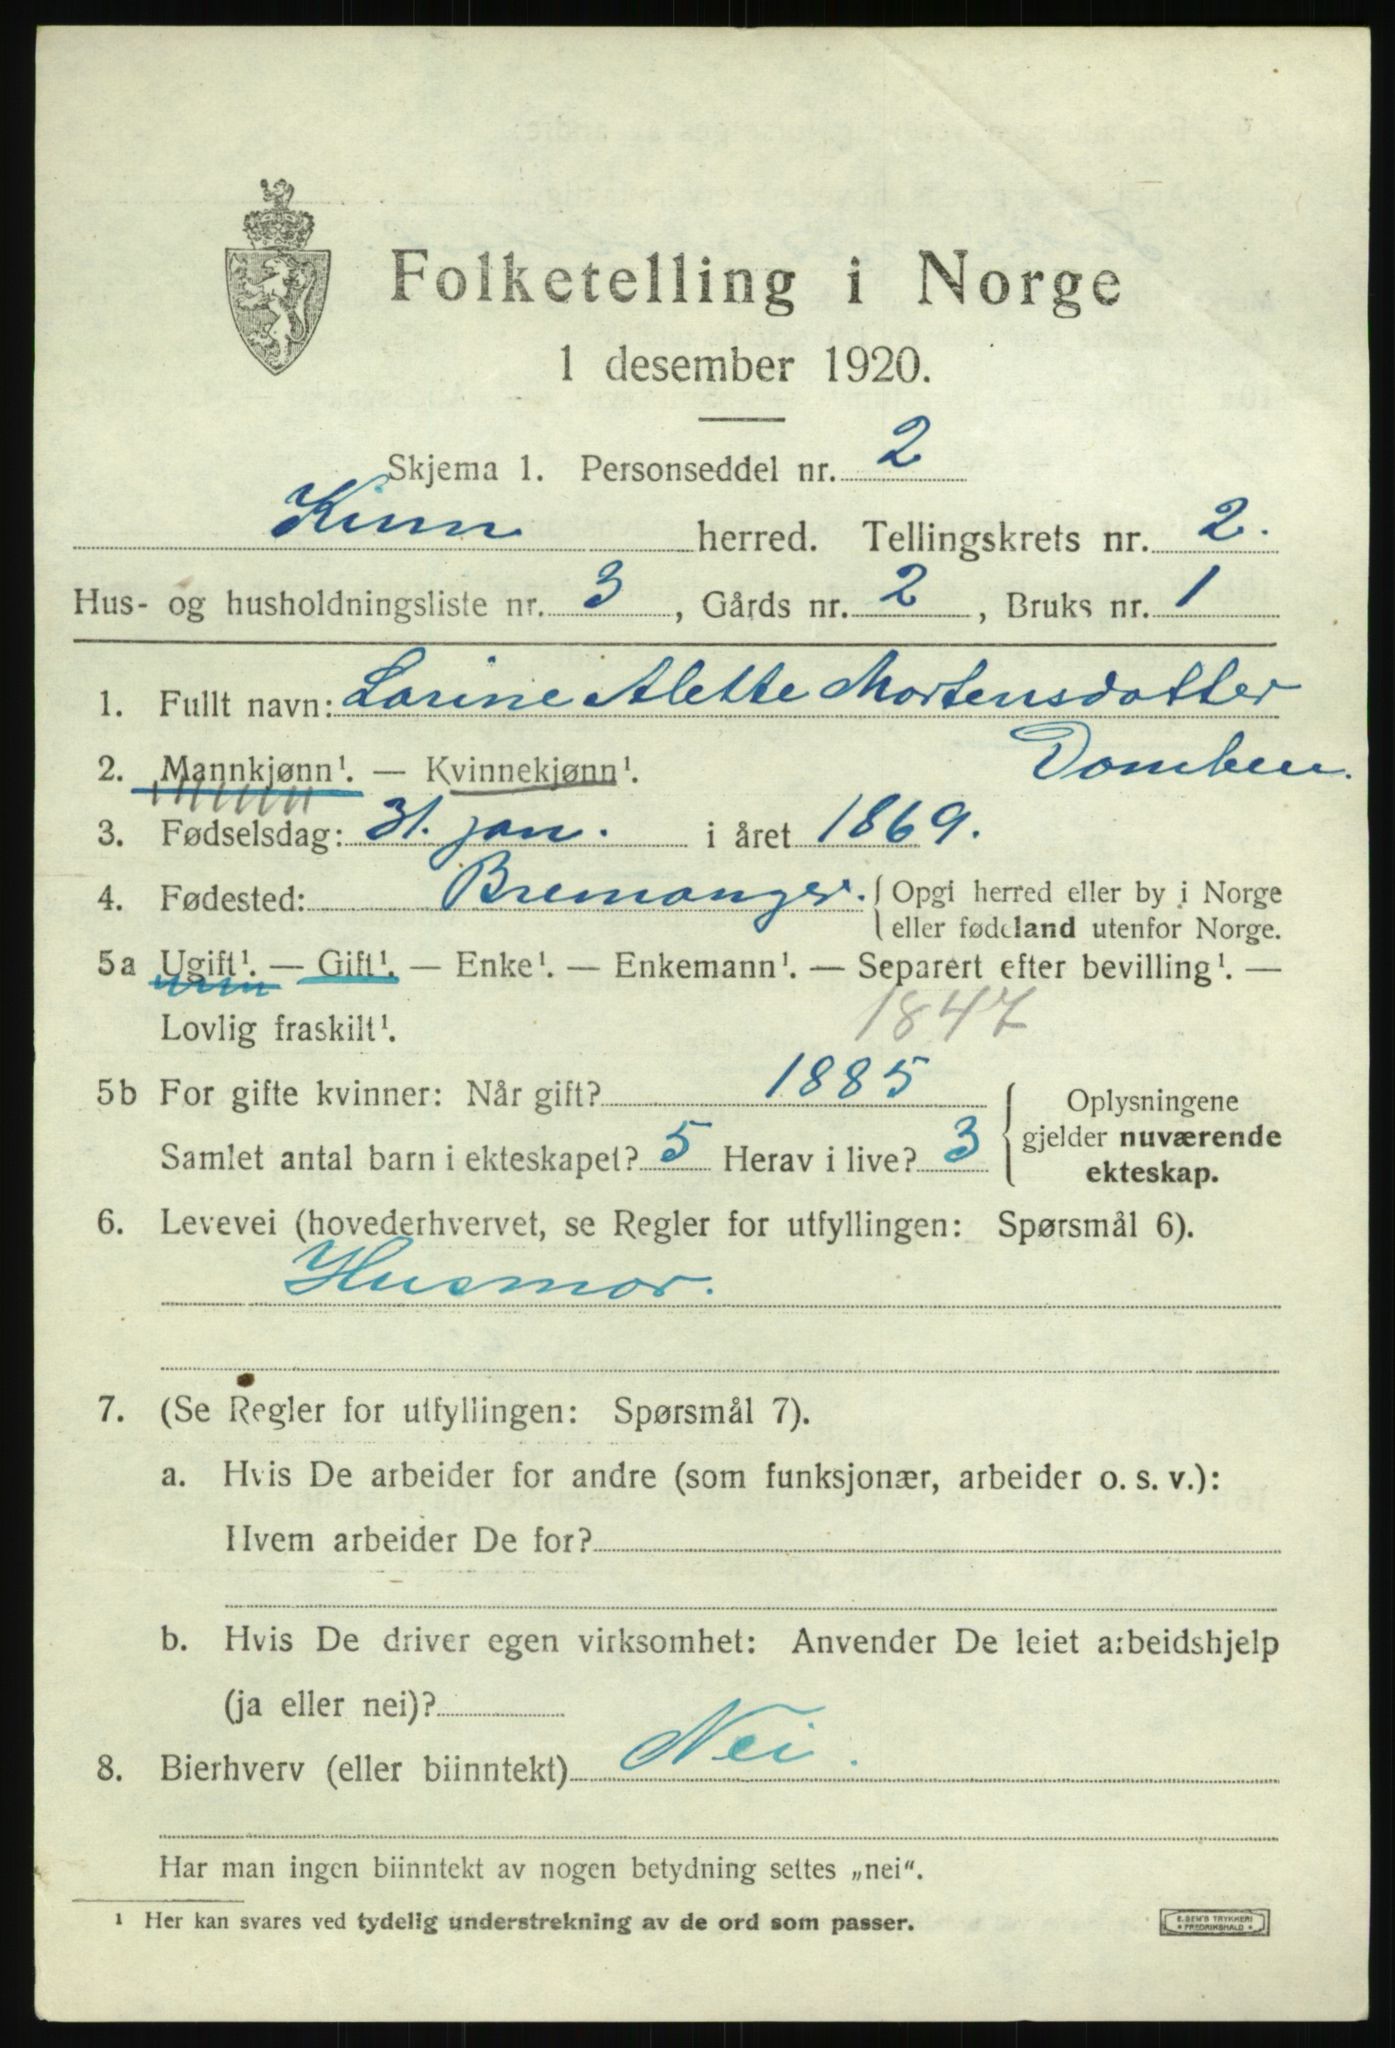 Folketelling i Norge
1 desember 1920.
Skjema 1. Personseddel nr. 2
Kinn herred. Tellingskrets nr. 2.
Hus- og husholdningsliste nr. 3, Gårds nr. 2, Bruks nr. 1
1. Fullt navn: Larine Alette Mortensdotter
Domben.
2. Mannkjønn¹. — Kvinnekjønn¹.
3. Fødselsdag: 31. jan. i året 1869.
4. Fødested: Bremanger. { Opgi herred eller by i Norge
eller fødeland utenfor Norge.
5a Ugift¹. — Gift¹. — Enke¹. — Enkemann¹. — Separert efter bevilling¹. —
Lovlig fraskilt¹. 1847
5b For gifte kvinner: Når gift? 1885
Samlet antal barn i ekteskapet? 5 Herav i live? 3
{ Oplysningene
gjelder nuværende
ekteskap.
6. Levevei (hovederhvervet, se Regler for utfyllingen: Spørsmål 6).
Husmor.
7. (Se Regler for utfyllingen: Spørsmål 7).
a. Hvis De arbeider for andre (som funksjonær, arbeider o. s. v.):
Hvem arbeider De for?
b. Hvis De driver egen virksomhet: Anvender De leiet arbeidshjelp
(ja eller nei)?
8. Bierhverv (eller biinntekt) Nei.
Har man ingen biinntekt av nogen betydning settes „nei“.
¹ Her kan svares ved tydelig understrekning av de ord som passer.
E. SEM'S TRYKKERI
* FREDRIKSHALD *